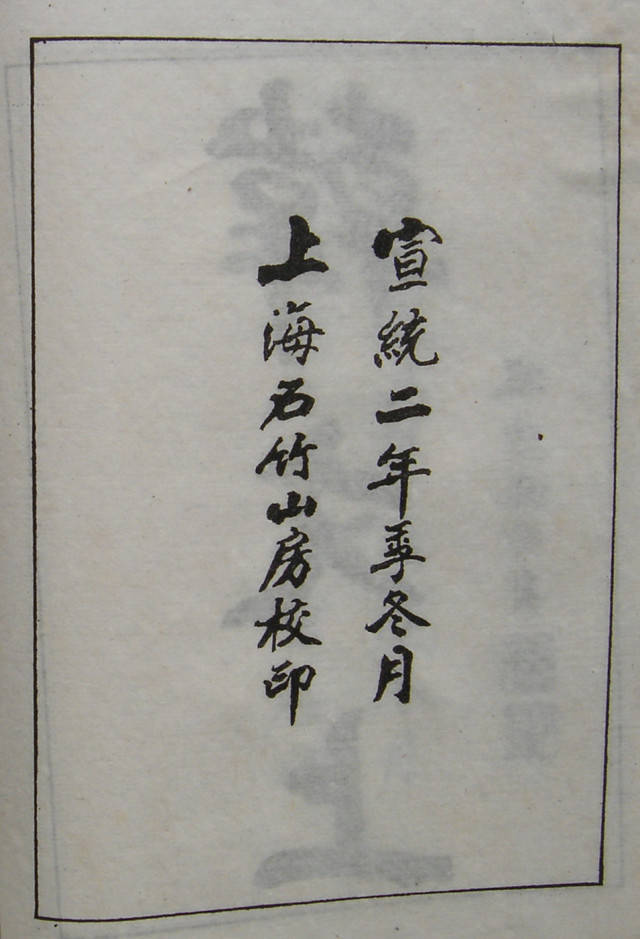 宣統二年季冬月
上海石竹山房校印